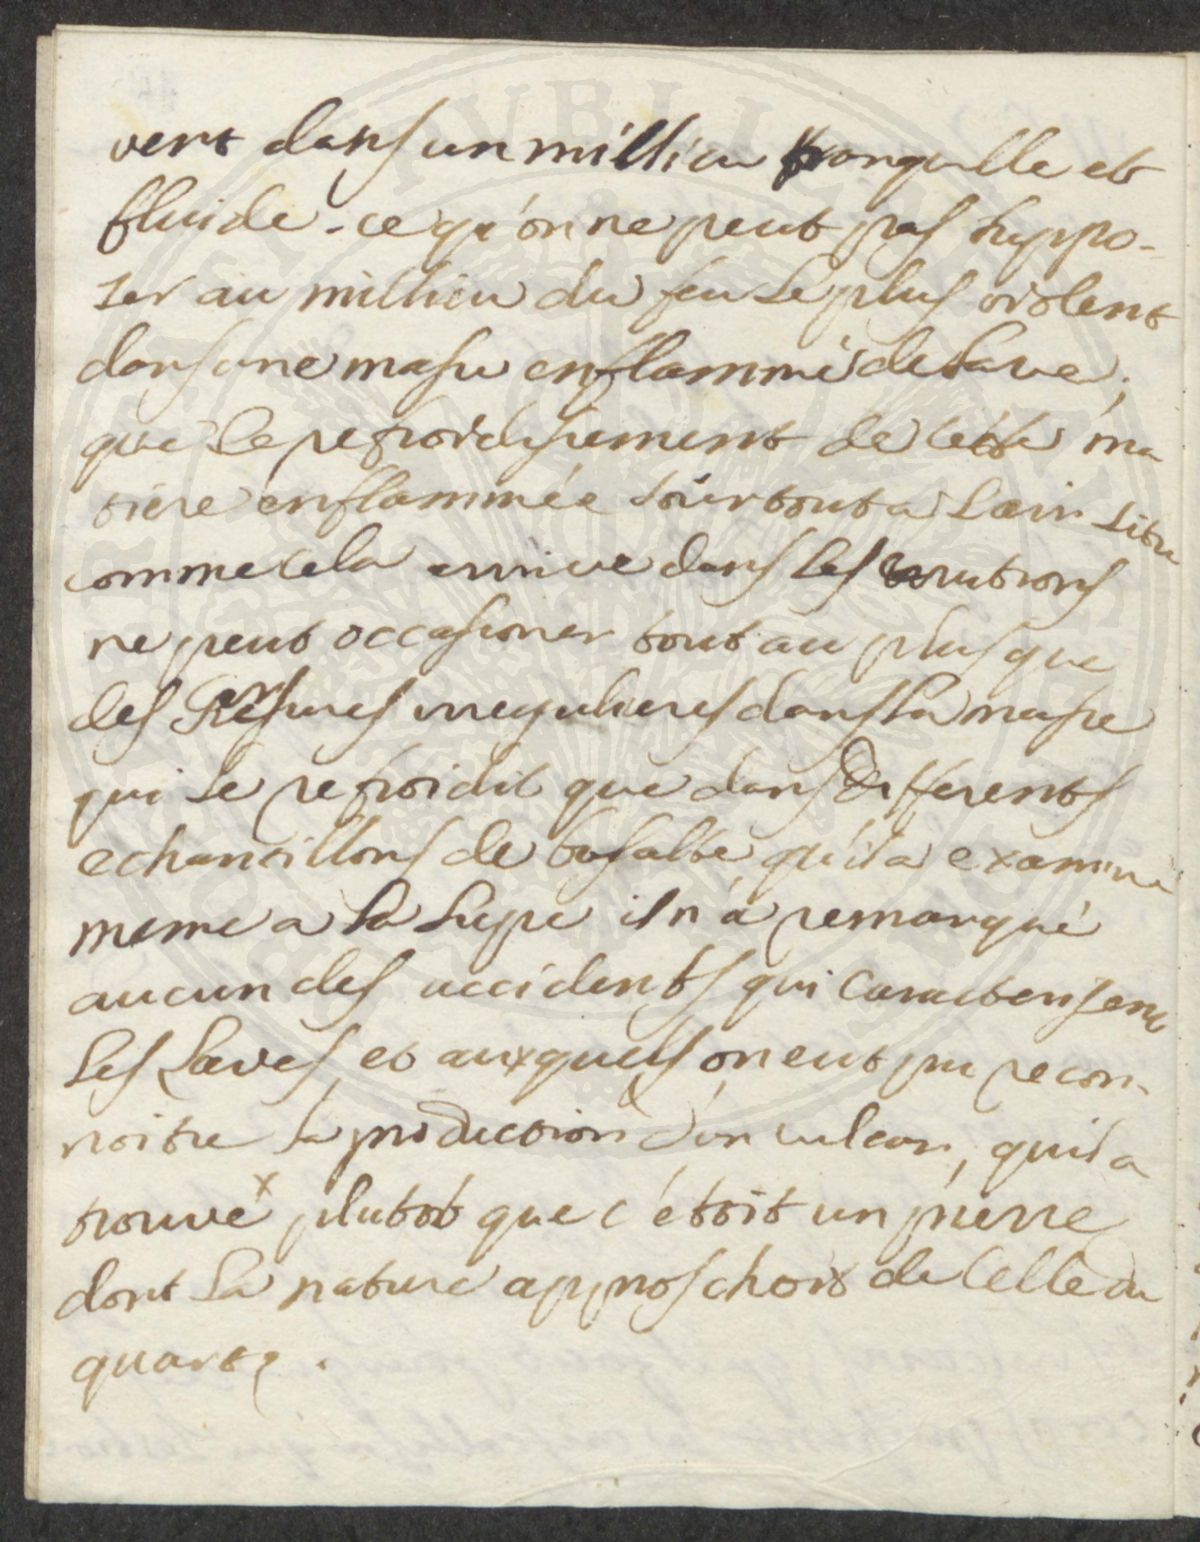 vent dans un millieu tranquille et
fluide. ce qu'on ne peut pas suppo-
ser au millieu du feu le plus violent
dans une masse enflammé de lave,
que le refroidissement de cette ma
tiere enflammée surtout a l'air libre
comme cela arrive dans les eruptions
ne peut occasioner tout au plus que
des Gersures irregulieres dans la masse
qui se refroidit que dans differents
echantillons de basalte qu'il a examiné
meme a la lupe il n'a remarqué
aucun des accidents qui caracterisent
les Laves et auxquels on eut pu recon-
noitre la production d'un vulcan, qu'il a
trouvé x plutot que c'étoit un pierre
dont la nature approschoit de celle du
quartz.